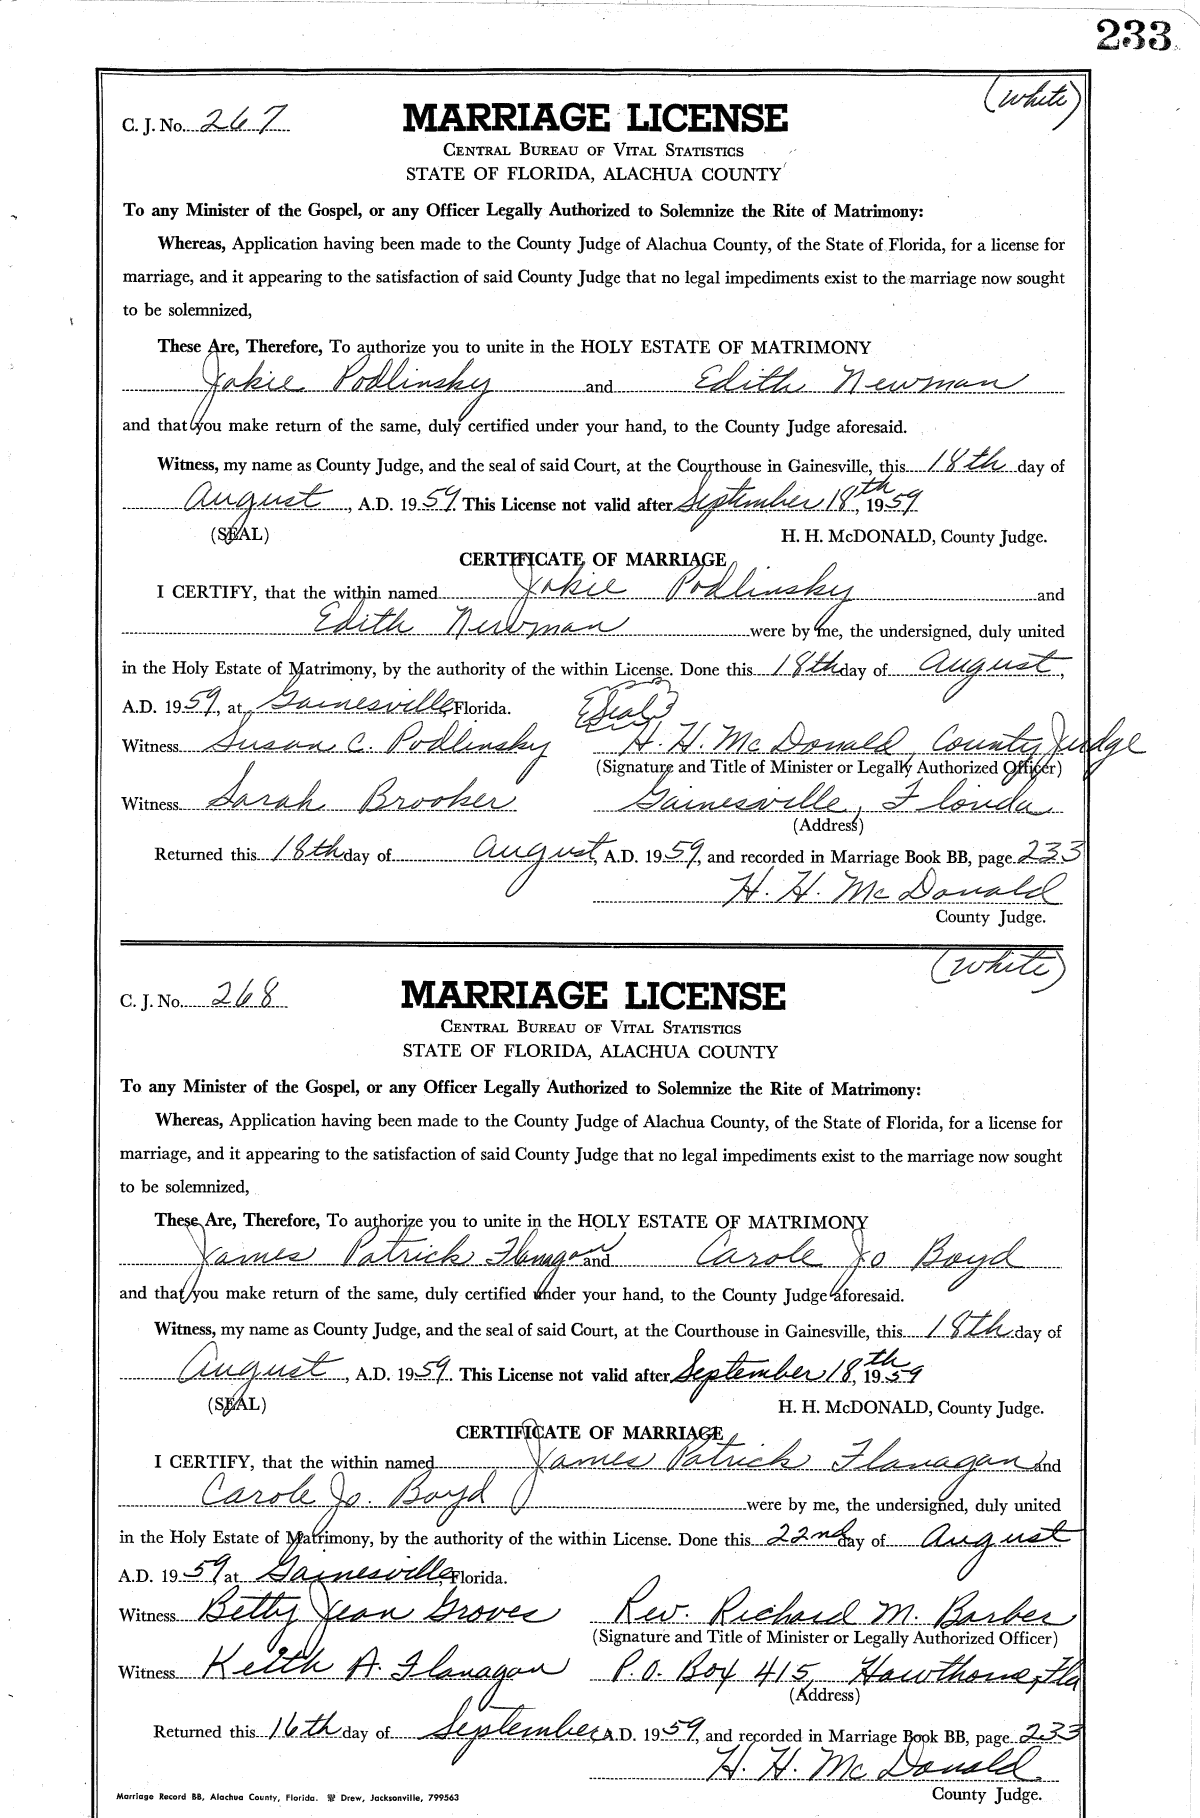 233
(White)
C. J. No. 267 MARRIAGE LICENSE
CENTRAL BUREAU OF VITAL STATISTICS
STATE OF FLORIDA, ALACHUA COUNTY
To any Minister of the Gospel, or any Officer Legally Authorized to Solemnize the Rite of Matrimony:
Whereas, Application having been made to the County Judge of Alachua County, of the State of Florida, for a license for
marriage, and it appearing to the satisfaction of said County Judge that no legal impediments exist to the marriage now sought
to be solemnized,
These Are, Therefore, To authorize you to unite in the HOLY ESTATE OF MATRIMONY
Jakie Podlinsky and Edith Newman
and that you make return of the same, duly certified under your hand, to the County Judge aforesaid.
Witness, my name as County Judge, and the seal of said Court, at the Courthouse in Gainesville, this 18th day of
August, A.D. 1959. This License not valid after September 18th, 1959
(SEAL) H. H. McDONALD, County Judge.
CERTIFICATE OF MARRIAGE
I CERTIFY, that the within named Jakie Podlinsky and
Edith Newman were by me, the undersigned, duly united
in the Holy Estate of Matrimony, by the authority of the within License. Done this 18th day of August,
A.D. 1959, at Gainesville, Florida. (Seal)
Witness Susan C. Podlinsky H. H. McDonald, County Judge
(Signature and Title of Minister or Legally Authorized Officer)
Witness Sarah Brooker Gainesville, Florida
(Address)
Returned this 18th day of August, A.D. 1959, and recorded in Marriage Book BB, page 233
H. H. McDonald
County Judge.
(White)
C. J. No. 268 MARRIAGE LICENSE
CENTRAL BUREAU OF VITAL STATISTICS
STATE OF FLORIDA, ALACHUA COUNTY
To any Minister of the Gospel, or any Officer Legally Authorized to Solemnize the Rite of Matrimony:
Whereas, Application having been made to the County Judge of Alachua County, of the State of Florida, for a license for
marriage, and it appearing to the satisfaction of said County Judge that no legal impediments exist to the marriage now sought
to be solemnized,
These Are, Therefore, To authorize you to unite in the HOLY ESTATE OF MATRIMONY
James Patrick Flanagan and Carole Jo Boyd
and that you make return of the same, duly certified under your hand, to the County Judge aforesaid.
Witness, my name as County Judge, and the seal of said Court, at the Courthouse in Gainesville, this 18th day of
August, A.D. 1959. This License not valid after September 18th, 1959
(SEAL) H. H. McDONALD, County Judge.
CERTIFICATE OF MARRIAGE
I CERTIFY, that the within named James Patrick Flanagan and
Carole Jo. Boyd were by me, the undersigned, duly united
in the Holy Estate of Matrimony, by the authority of the within License. Done this 22nd day of August
A.D. 1959, at Gainesville, Florida.
Witness Betty Jean Groves Rev. Richard M. Barber
(Signature and Title of Minister or Legally Authorized Officer)
Witness Keith A. Flanagan P.O. Box 415, Hawthorne, Fla
(Address)
Returned this 16th day of September A.D. 1959, and recorded in Marriage Book BB, page 233
H. H. McDonald
County Judge.
Marriage Record BB, Alachua County, Florida. Drew, Jacksonville, 799563